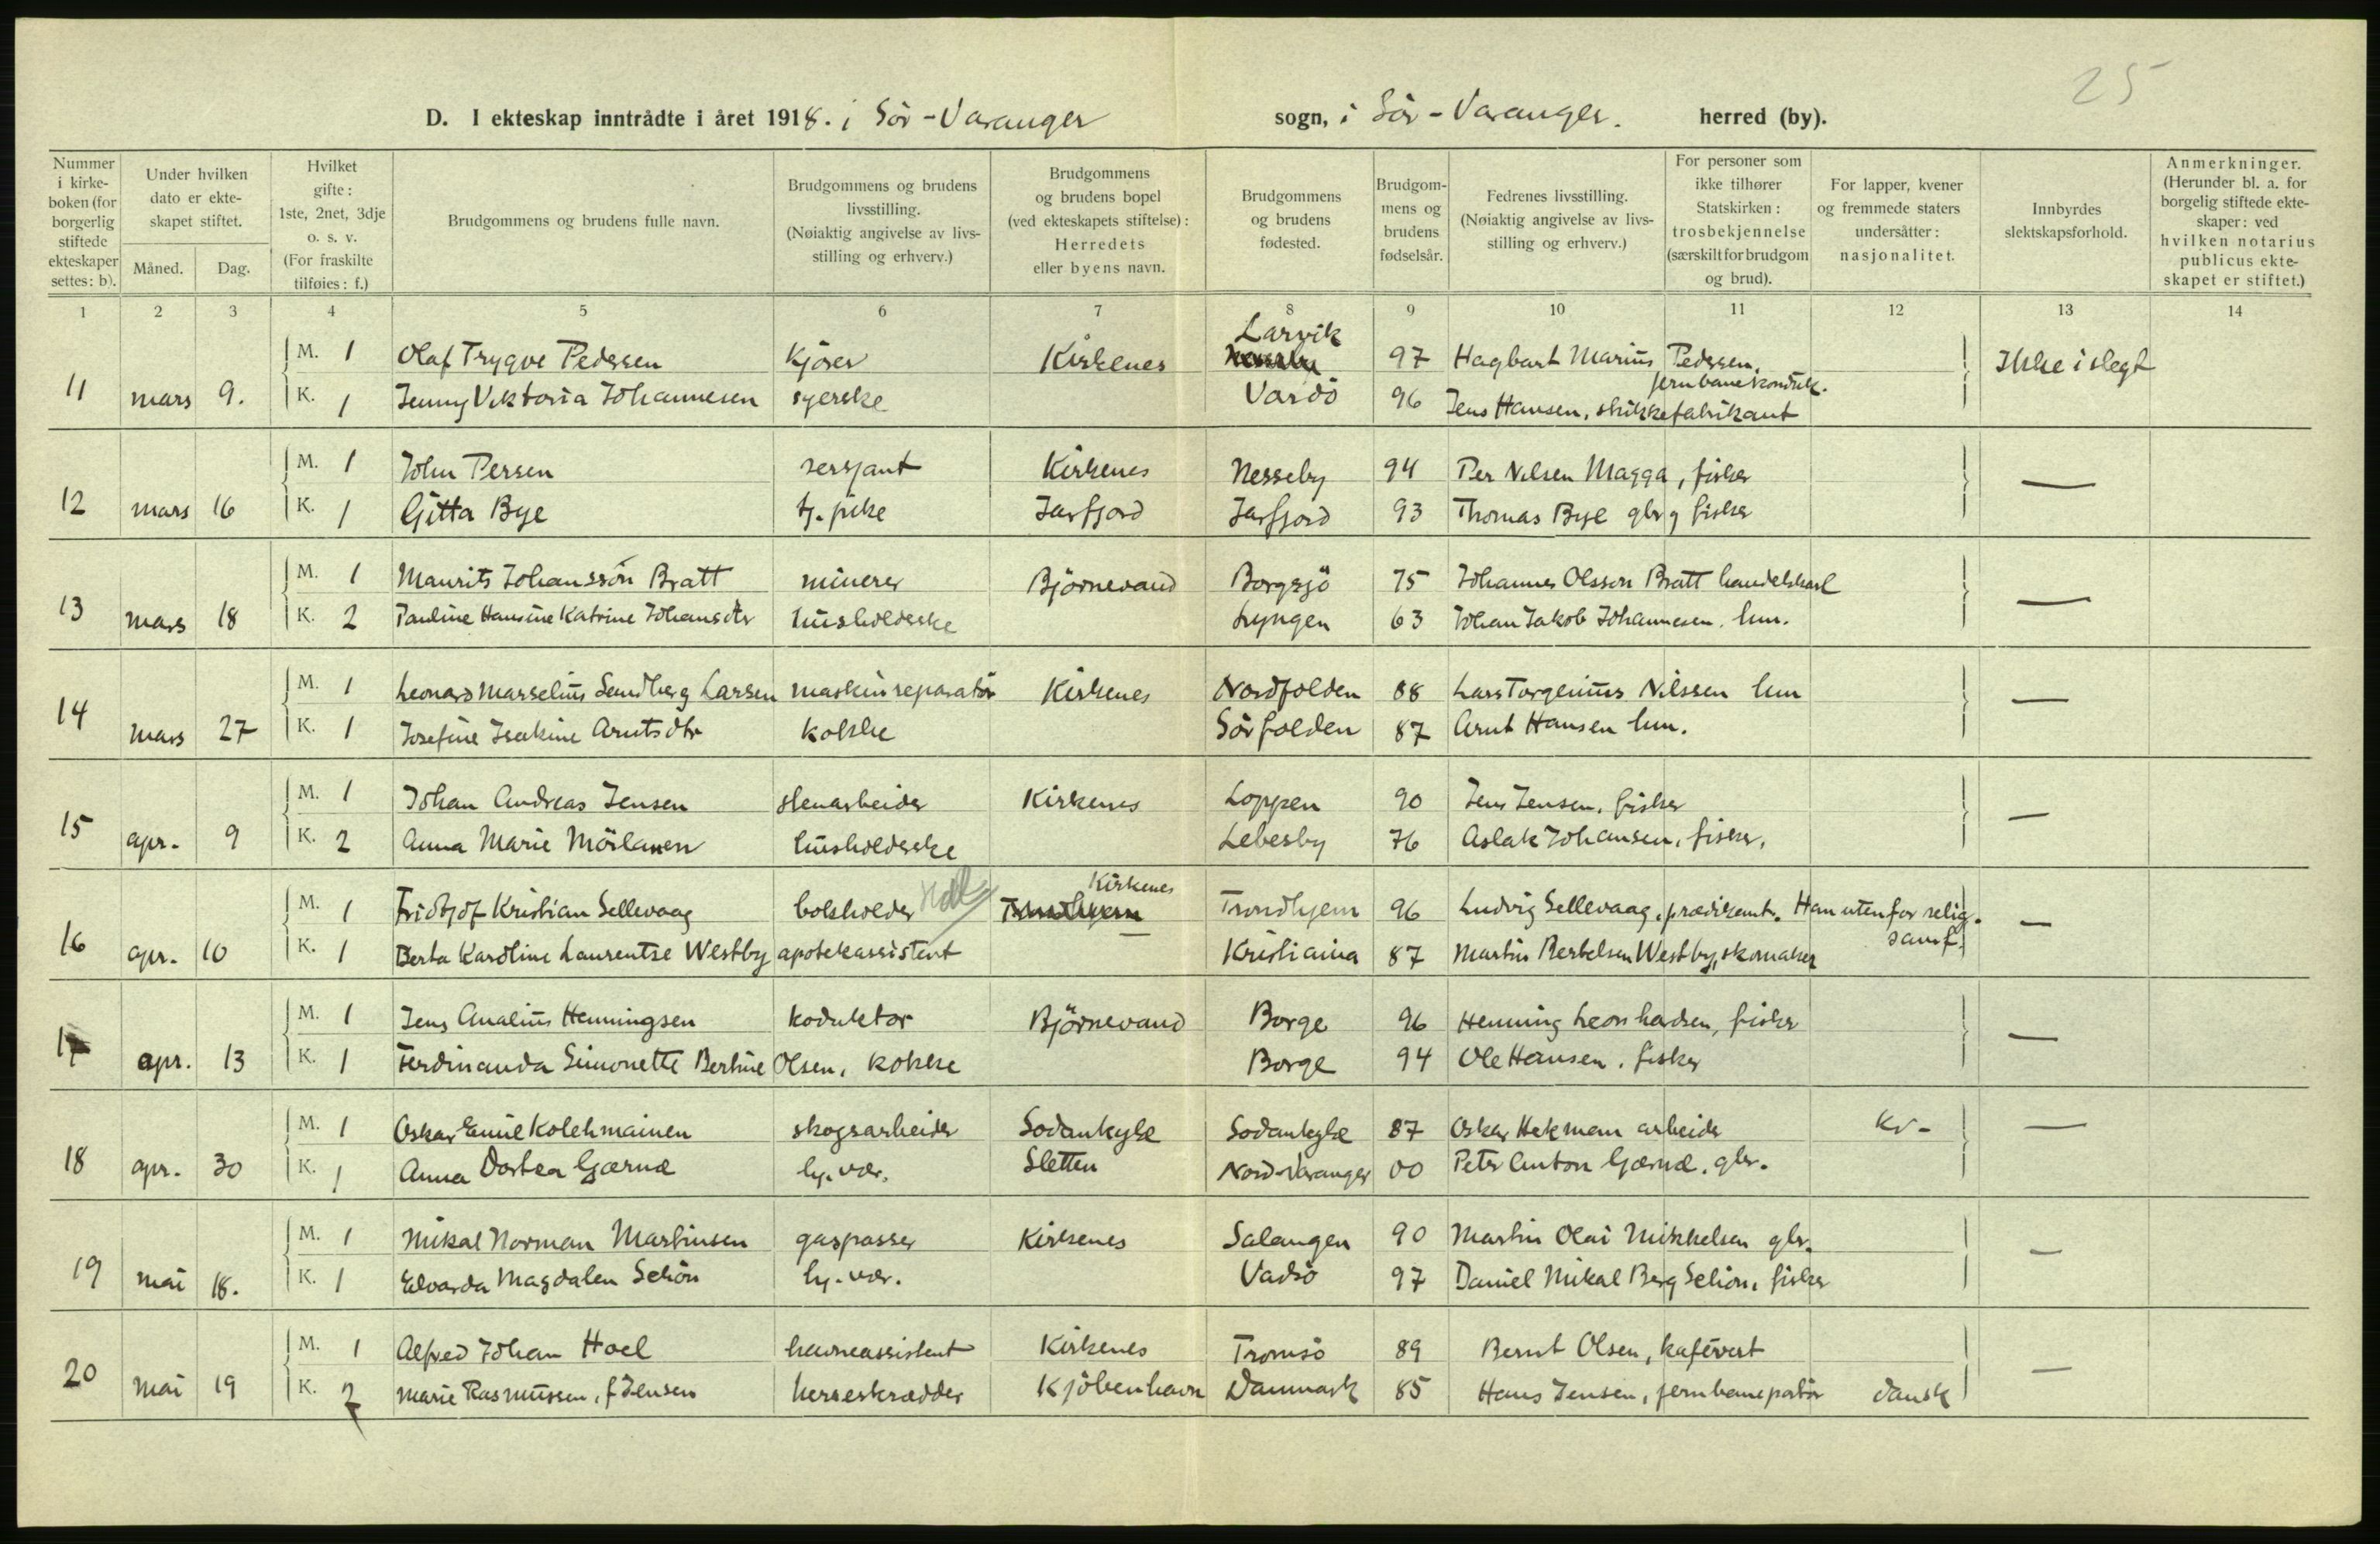 25
D. I ekteskap inntrådte i året 1918. i Sör-Varanger sogn, i Sör-Varanger. herred (by).
Nummer i kirke-boken (for borgerlig stiftede ekteskaper settes: b).
Under hvilken dato er ekte-skapet stiftet.
Måned. Dag.
Hvilket gifte: 1ste, 2net, 3dje o. s. v. (For fraskilte tilføies: f.)
Brudgommens og brudens fulle navn.
Brudgommens og brudens livsstilling. (Nøiaktig angivelse av livs-stilling og erhverv.)
Brudgommens og brudens bopel (ved ekteskapets stiftelse): Herredets eller byens navn.
Brudgommens og brudens fødested.
Brudgom-mens og brudens fødselsår.
Fedrenes livsstilling. (Nøiaktig angivelse av livs-stilling og erhverv.)
For personer som ikke tilhører Statskirken: trosbekjennelse (særskilt for brudgom og brud).
For lapper, kvener og fremmede staters undersåtter: nasjonalitet.
Innbyrdes slektskapsforhold.
Anmerkninger. (Herunder bl. a. for borgelig stiftede ekte-skaper: ved hvilken notarius publicus ekte-skapet er stiftet.)
1 2 3 4 5 6 7 8 9 10 11 12 13 14
Larvik
M. 1 Olaf Trygve Pedersen kjörer Kirkenes 97 Hagbart Marius Pedersen, jernbanekonduk. Ikke i slegt
11 mars 9. K. 1 Jenny Viktoria Johannesen syerske Vardö 96 Jens Hansen, skikkefabrikant
M. 1 John Persen sersjant Kirkenes Nesseby 94 Per Nilsen Magga, fisker
12 mars 16 K. 1 Gitta Bye tj. pike Jarfjord Jarfjord 93 Thomas Bye gbr og fisker —
M. 1 Maurits Johanssön Bratt minerer Björnevand Borgsjö 75 Johannes Olsson Bratt handelskarl
13 mars 18 K. 2 Pauline Hansine Katrine Johansdtr husholderske Lyngen 63 Johan Jakob Johannesen, lm. —
M. 1 Leonard Marselius Sandberg Larsen maskinreparatör Kirkenes Nordfolden 88 Lars Torgenius Nilssen lm
14 mars 27 K. 1 Josefine Isakine Arntsdtr kokke Sörfolden 87 Arnt Hansen lm. —
M. 1 Johan Andreas Jensen stenarbeider Kirkenes Loppen 90 Jens Jensen, fisker
15 apr. 9 K. 2 Anna Marie Mörlanen husholderske Lebesby 76 Aslak Johansen, fisker. —
Kirkenes
M. 1 Fridtjof Kristian Sellevaag bokholder Trondhjem Trondhjem 96 Ludvig Sellevaag, prædikant. Han utenfor relig. samf.
16 apr. 10 K. 1 Berta Karoline Laurentse Westby apotekassistent Kristiania 87 Martin Bertelsen Westby, skomaker —
M. 1 Jens Analius Henningsen koduktor Björnevand Borge 96 Henning Leonhardsen, fisker
17 apr. 13 K. 1 Ferdinanda Simonette Bertine Olsen, kokke Borge 94 Ole Hansen, fisker —
M. 1 Oskar Emil Kolehmainen skogsarbeider Sodankyle Sodankyle 87 Oskar Hekman arbeider kv- —
18 apr. 30 K. 1 Anna Dortea Gærnæ hj. vær. Sletten Nord-Varanger 00 Peter Anton Gærnæ, gbr.
M. 1 Mikal Norman Martinsen gaspasser Kirkenes Salangen 90 Martin Olai Mikkelsen gbr.
19 mai 18. K. 1 Edvarda Magdalen Seliön hj. vær. Vadsö 97 Daniel Mikal Berg Seliön, fisker —
M. 1 Alfred Johan Hoel havneassistent Kirkenes Tromsö 89 Bernt Olsen, kafévert
20 mai 19 K. 2 Marie Rasmussen, f Jensen herreskrædder Kjöbenhavn Danmark 85 Hans Jensen, jernbaneportör dansk —